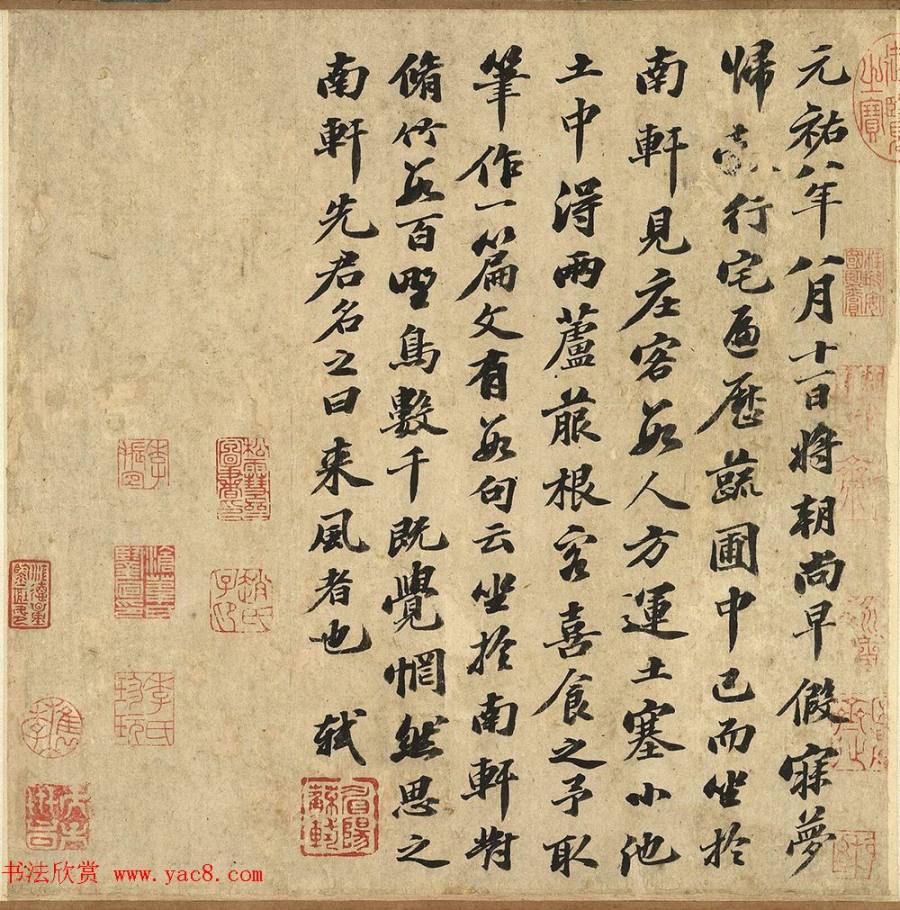 元祐八年八月十一日將朝尚早假寐夢
歸行宅遍歷蔬圃中已而坐於
南軒見庄客數人方運土塞小池
土中得兩蘆菔根客喜食之予取
筆作一篇文有數句云坐於南軒對
脩竹數百野鳥數千既覺惘然思之
南軒先君名之曰來風者也 軾
眉陽蘇軾
书法欣赏 www.yac8.com